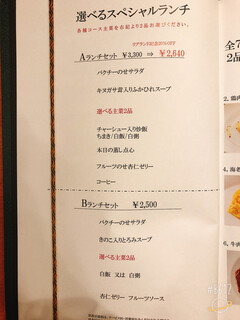 選べるスペシャルランチ
各種コース主菜を右記より2品お選びください。
リブランド記念20%OFF
Aランチセット ¥3,300 ⇒ ¥2,640
パクチーのせサラダ
キヌガサ茸入りふかひれスープ
選べる主菜2品
チャーシュー入り炒飯
ちまき/白飯/白粥
本日の蒸し点心
フルーツのせ杏仁ゼリー
コーヒー
Bランチセット ¥2,500
パクチーのせサラダ
きのこ入りとろみスープ
選べる主菜2品
白飯 又は 白粥
杏仁ゼリー フルーツソース
全7
2品
2. 鶏肉
4. 海老
6. 牛肉